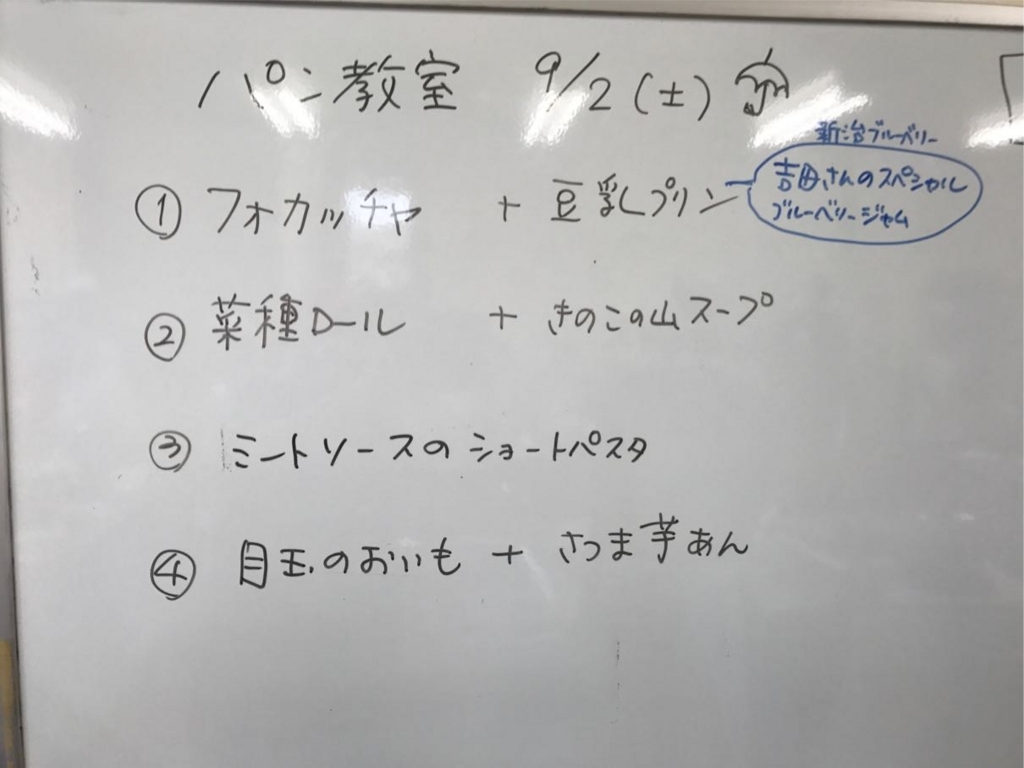 パン教室 9/2(土)
新治ブルーベリー
吉田さんのスペシャル
ブルーベリージャム
① フォカッチャ + 豆乳プリン
② 菜種ロール + きのこの山スープ
③ ミートソースのショートパスタ
④ 目玉のおいも + さつま芋あん